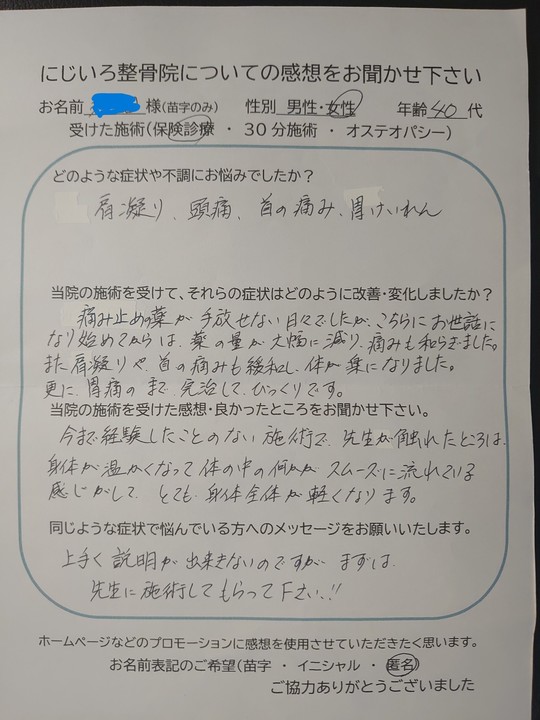 にじいろ整骨院についての感想をお聞かせ下さい
お名前 様(苗字のみ) 性別 男性・女性 年齢 40 代
受けた施術(保険診療 ・ 30分施術 ・ オステオパシー)
どのような症状や不調にお悩みでしたか?
肩凝り、頭痛、首の痛み、胃けいれん
当院の施術を受けて、それらの症状はどのように改善・変化しましたか?
痛み止めの薬が手放せない日々でしたが、こちらにお世話に
なり始めてからは、薬の量が大幅に減り、痛みも和らぎました。
また肩凝りや、首の痛みも緩和し、体が楽になりました。
更に、胃痛のまで完治して、びっくりです。
当院の施術を受けた感想・良かったところをお聞かせ下さい。
今まで経験したことのない施術で、先生が触れたところは、
身体が温かくなって体の中の何かがスムーズに流れている
感じがして、とても身体全体が軽くなります。
同じような症状で悩んでいる方へのメッセージをお願いいたします。
上手く説明が出来きないのですが、まずは、
先生に施術してもらって下さい!!
ホームページなどのプロモーションに感想を使用させていただきたく思います。
お名前表記のご希望(苗字 ・ イニシャル ・ 匿名)
ご協力ありがとうございました